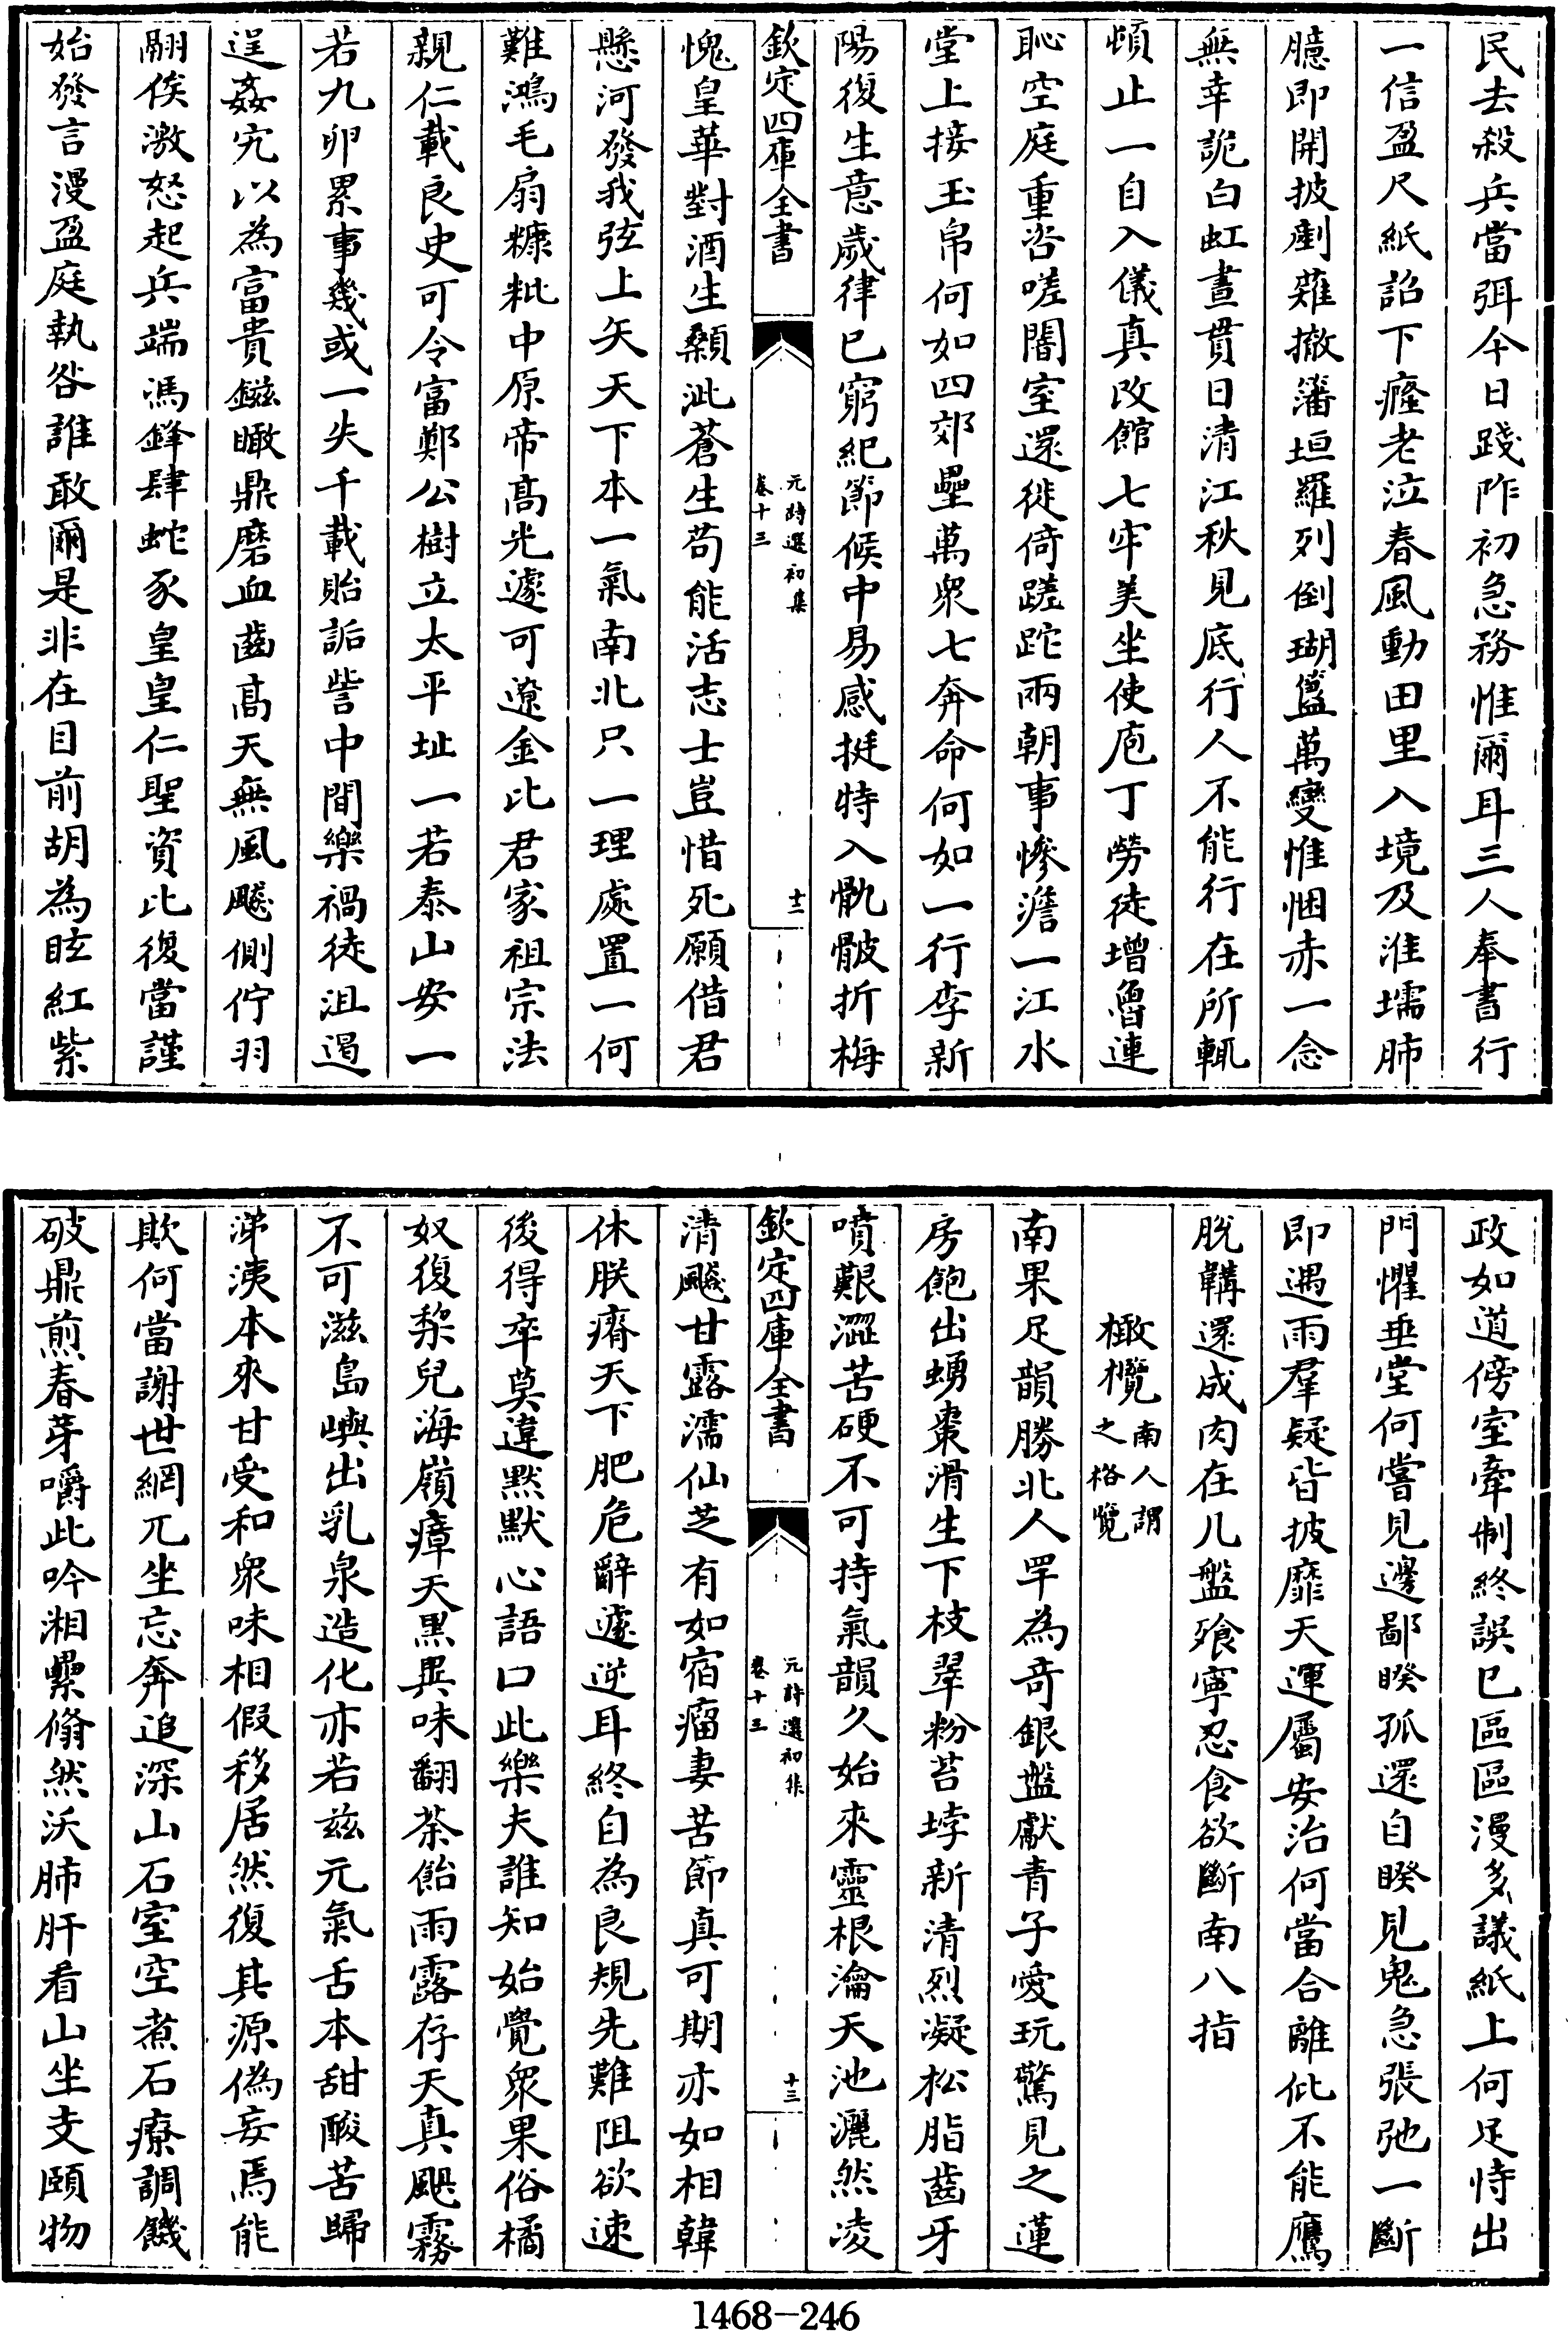 民去殺兵當弭今日踐阼初急務惟爾耳三人奉書行
一信盈尺紙詔下癃老泣春風動田里入境及淮壖肺
臆即開披剷薙撤藩垣羅列倒瑚簋萬變惟悃赤一念
無幸詭白虹晝貫日清江秋見底行人不能行在所輒
頓止一自入儀真改館七牢美坐使庖丁勞徒增魯連
恥空庭重咨嗟闇室還徙倚蹉跎兩朝事慘澹一江水
堂上接玉帛何如四郊壘萬衆七奔命何如一行李新
陽復生意歲律已窮紀節候中易感挺特入骩骳折梅
欽定四庫全書
元詩選初集
卷十三
十二
愧皇華對酒生顙泚蒼生苟能活志士豈惜死願借君
懸河發我弦上矢天下本一氣南北只一理處置一何
難鴻毛扇糠粃中原帝高光遽可遼金比君家祖宗法
親仁載良史可令富鄭公樹立太平址一若泰山安一
若九卵累事幾或一失千載貽詬訾中間樂禍徒沮遏
逞姦宄以為富貴鎡瞰鼎磨血齒高天無風飇側佇羽
翮俟激怒起兵端馮鋒肆蛇豕皇皇仁聖資比復當謹
始發言漫盈庭執咎誰敢爾是非在目前胡為眩紅紫
政如道傍室牽制終誤已區區漫多議紙上何足恃出
門懼垂堂何嘗見邊鄙睽孤還自睽見鬼急張弛一斷
即遇雨羣疑皆披靡天運屬安治何當合離仳不能鷹
脫鞲還成肉在几盤飱寧忍食欲斷南八指
橄欖南人謂
之格覽
南果足韻勝北人罕為奇銀盤獻青子愛玩驚見之蓮
房飽出蛹棗滑生下枝翠粉苔垶新清烈凝松脂齒牙
噴艱澀苦硬不可持氣韻久始來靈根瀹天池灑然凌
欽定四庫全書
元詩選初集
卷十三
十三
清飇甘露濡仙芝有如宿瘤妻苦節真可期亦如相韓
休朕瘠天下肥危辭遽逆耳終自為良規先難阻欲速
後得卒莫違默默心語口此樂夫誰知始覺衆果俗橘
奴復棃兒海嶺瘴天黒異味翻荼飴雨露存天真颶霧
不可滋島嶼出乳泉造化亦若茲元氣舌本甜酸苦歸
涕洟本來甘受和衆味相假移居然復其源偽妄焉能
欺何當謝世網兀坐忘奔追深山石室空煮石療調饑
破鼎煎春芽嚼此吟湘纍翛然沃肺肝看山坐支頤物
1468-246